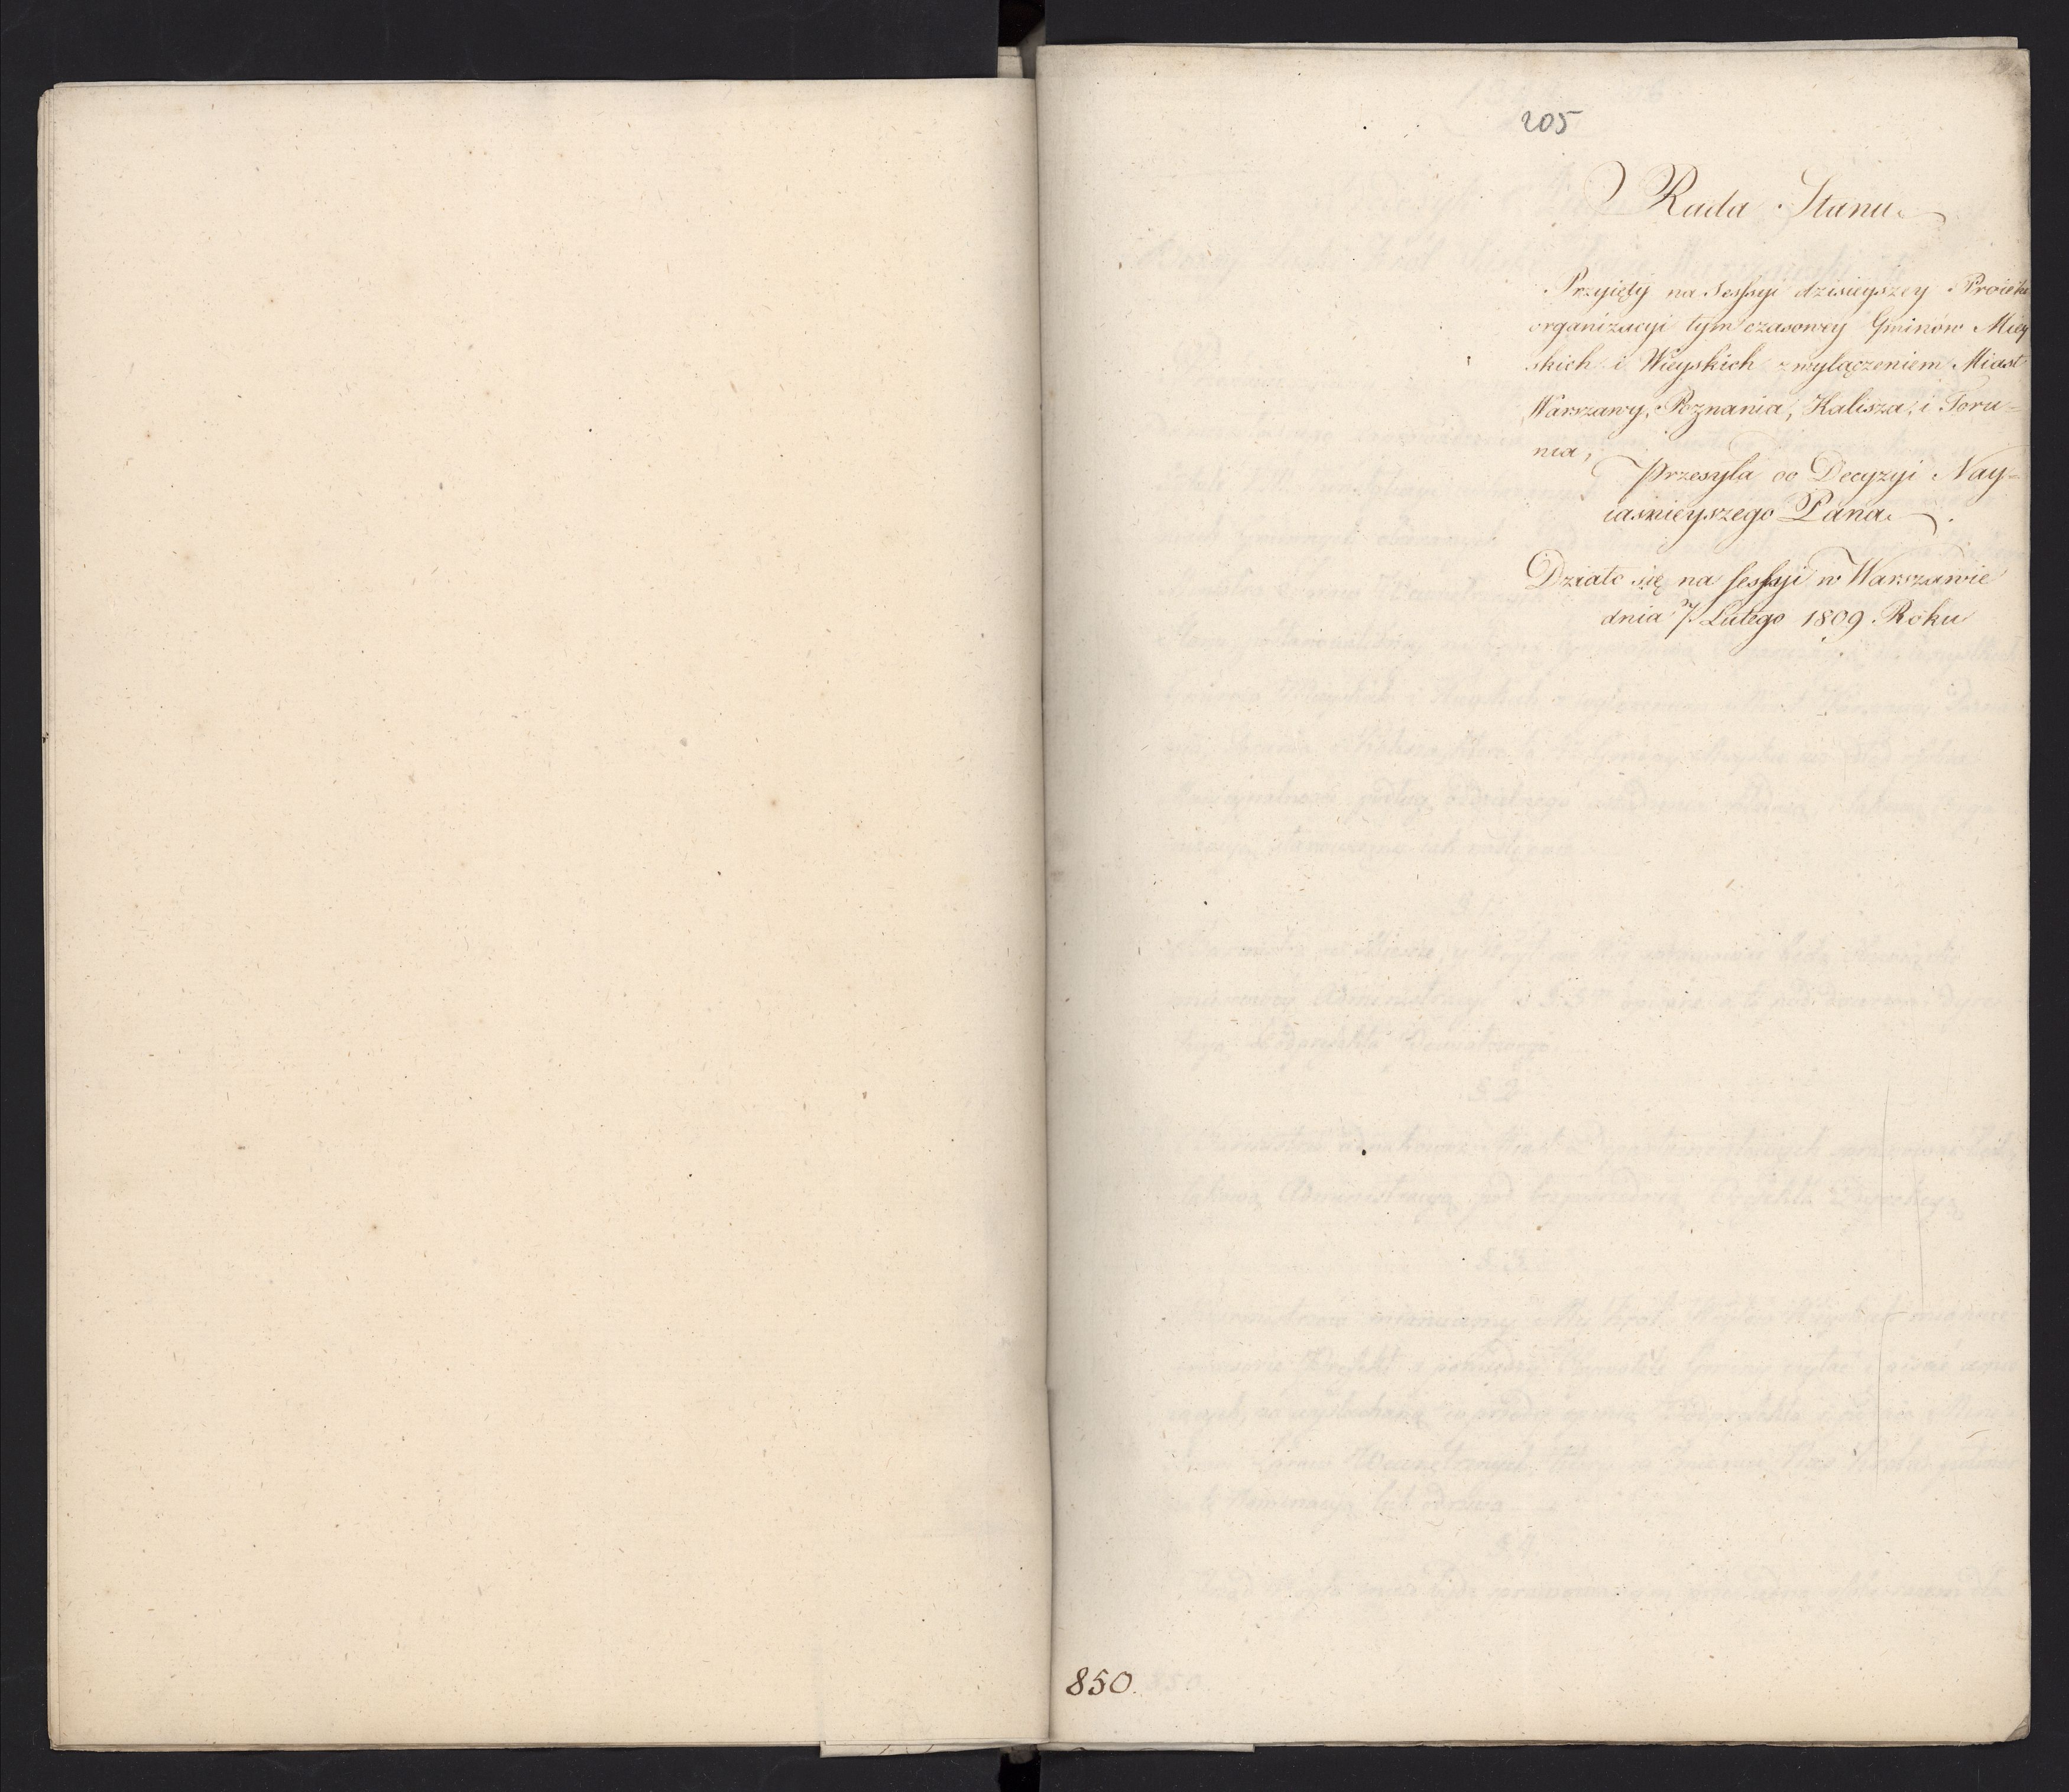 205
Rada Stanu
Przyięty na Sessyi dzisieyszey Proiekt
organizacyi tym czasowey Gminów Miey
skich i Wieyskich z wyłączeniem Miast
Warszawy, Poznania, Kalisza, i Toru=
nia,
Przesyła do Decyzyi Nay=
iaśnieyszego Pana.
Działo się na sessyi w Warszawie
dnia 7 Lutego 1809 Roku
850.